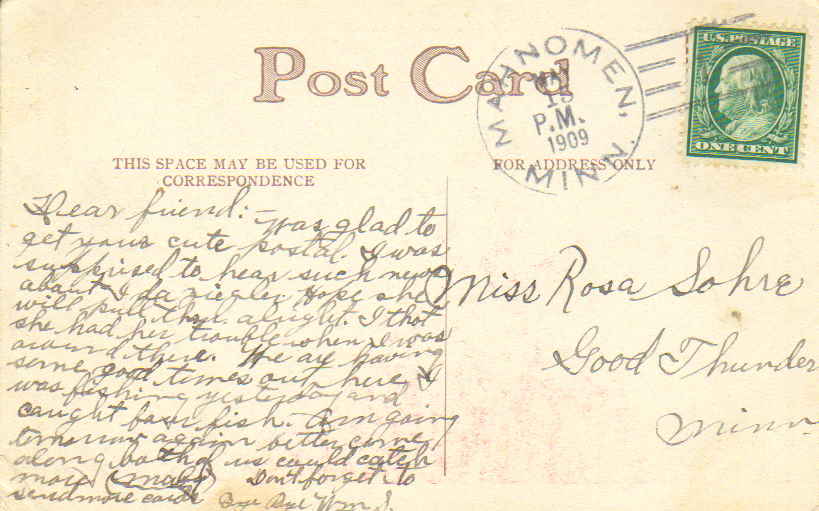 Post Card
MAHNOMEN,
15
P.M.
1909
MINN.
U.S. POSTAGE
ONE CENT
THIS SPACE MAY BE USED FOR
CORRESPONDENCE
FOR ADDRESS ONLY
Dear friend:- Was glad to
get your cute postal. I was
surprised to hear such news
about Ida Hope she
will pull thru alright. I thot
she had her trouble when I was
around there. We are having
some good times out here. I
was fishing yesterday and
caught four fish. Am going
tomorrow again better come
along both of us could catch
more (maby) Don't forget to
send more cards Bye Bye Wm J.
Miss Rosa Sohre
Good Thunder
Minn